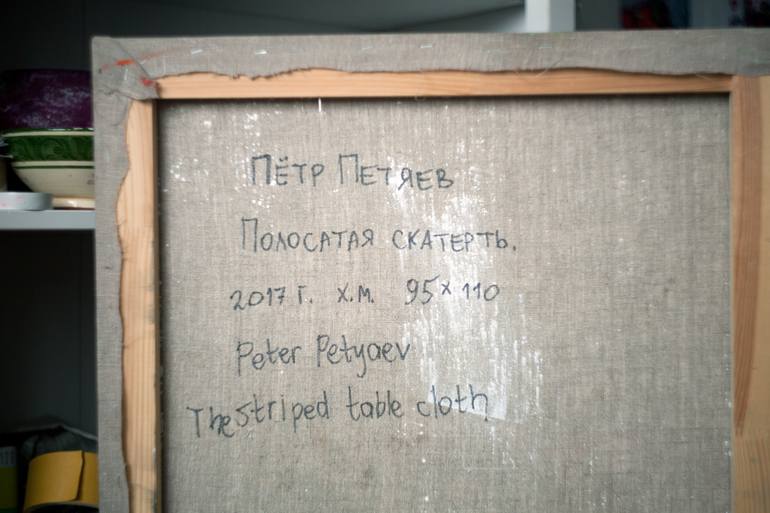 Пётр Петяев
Полосатая скатерть.
2017 г. х.м. 95 x 110
Peter Petyaev
The striped table cloth